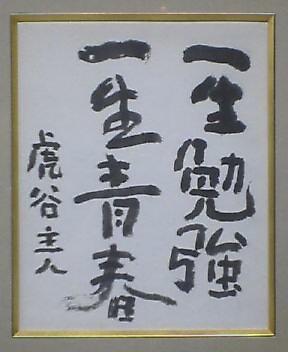 一生勉強
一生青春
虎谷主人